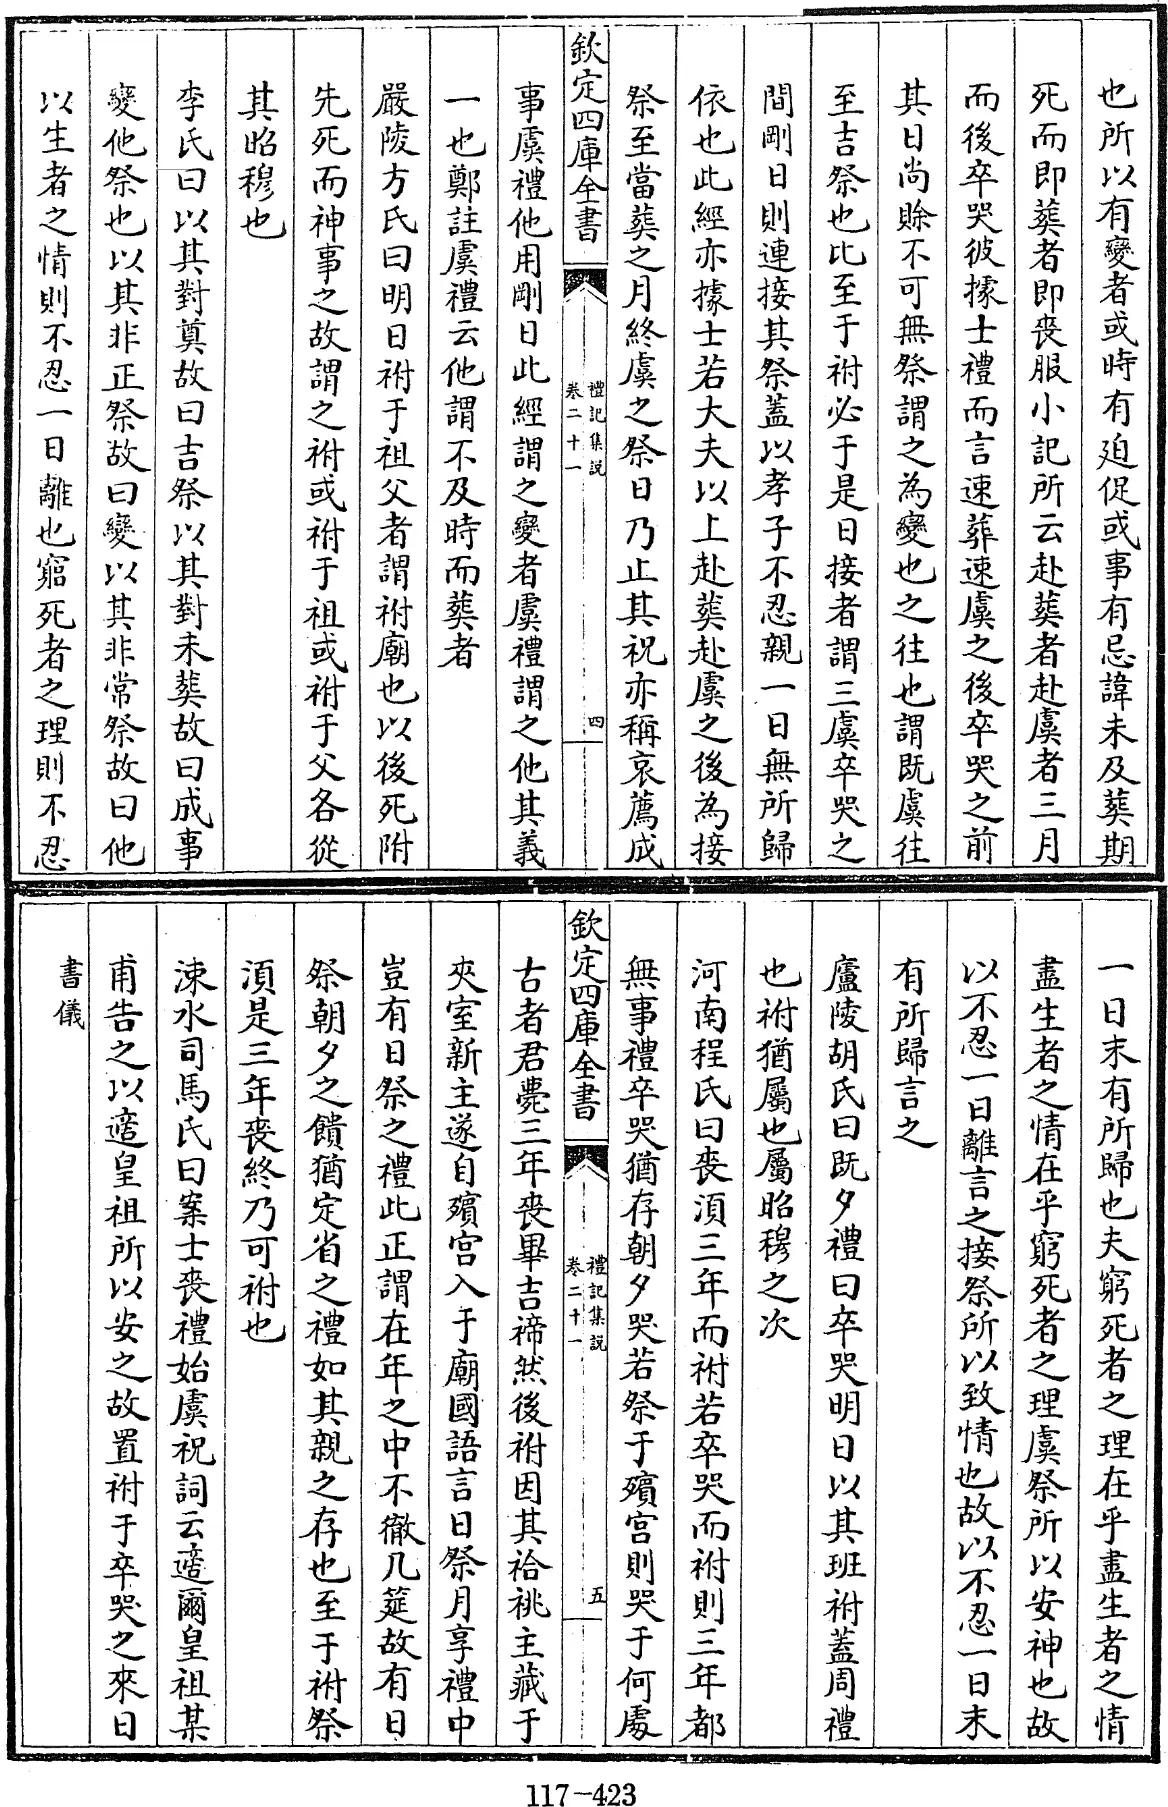 也所以有變者或時有迫促或事有忌諱未及葬期
死而即葬者即喪服小記所云赴葬者赴虞者三月
而後卒哭彼據士禮而言速葬速虞之後卒哭之前
其日尚賒不可無祭謂之為變也之往也謂既虞往
至吉祭也比至于祔必于是日接者謂三虞卒哭之
間剛日則連接其祭蓋以孝子不忍親一日無所歸
依也此經亦據士若大夫以上赴葬赴虞之後為接
祭至當葬之月終虞之祭日乃止其祝亦稱哀薦成
欽定四庫全書
禮記集説
卷二十一
四
事虞禮他用剛日此經謂之變者虞禮謂之他其義
一也鄭註虞禮云他謂不及時而葬者
嚴陵方氏曰明日祔于祖父者謂祔廟也以後死附
先死而神事之故謂之祔或祔于祖或祔于父各從
其昭穆也
李氏曰以其對奠故曰吉祭以其對未葬故曰成事
變他祭也以其非正祭故曰變以其非常祭故曰他
以生者之情則不忍一日離也窮死者之理則不忍
一日末有所歸也夫窮死者之理在乎盡生者之情
盡生者之情在乎窮死者之理虞祭所以安神也故
以不忍一日離言之接祭所以致情也故以不忍一日末
有所歸言之
廬陵胡氏曰既夕禮曰卒哭明日以其班祔蓋周禮
也祔猶屬也屬昭穆之次
河南程氏曰喪須三年而祔若卒哭而祔則三年都
無事禮卒哭猶存朝夕哭若祭于殯宮則哭于何處
欽定四庫全書
禮記集説
卷二十一
五
古者君薨三年喪畢吉禘然後祔因其祫祧主藏于
夾室新主遂自殯宮入于廟國語言日祭月享禮中
豈有日祭之禮此正謂在年之中不徹几筵故有日
祭朝夕之饋猶定省之禮如其親之存也至于祔祭
須是三年喪終乃可祔也
涑水司馬氏曰案士喪禮始虞祝詞云適爾皇祖某
甫告之以適皇祖所以安之故置祔于卒哭之來日
書儀
117-423